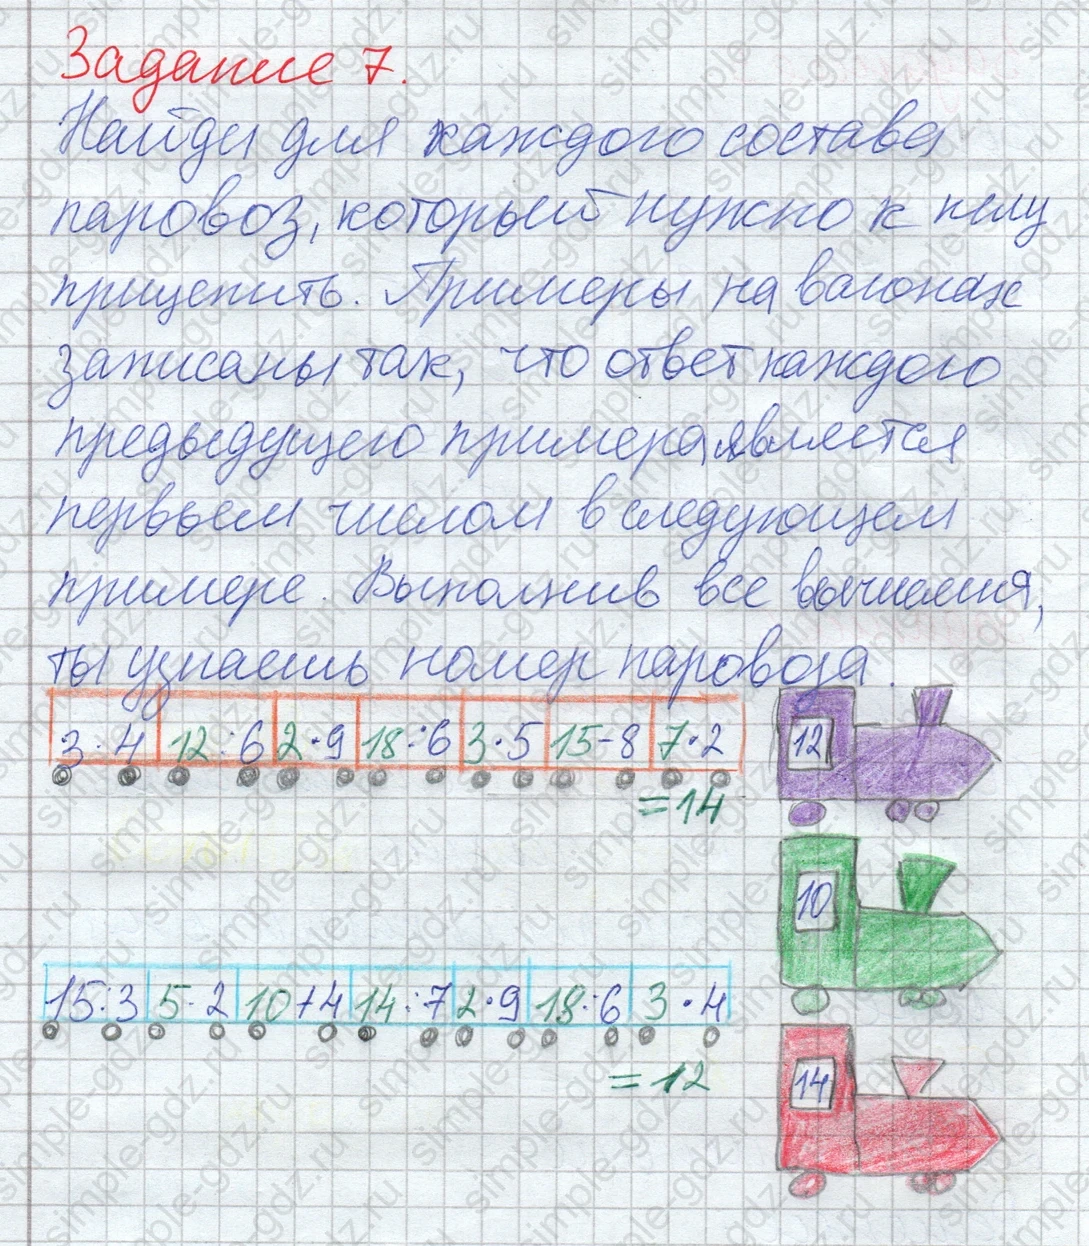 Задание 7.
Найди для каждого состава
паровоз, который нужно к нему
прицепить. Примеры на вагонах
записаны так, что ответ каждого
предыдущего примера является
первым числом в следующем
примере. Выполнив все вычисления,
ты узнаешь номер паровоза.
3·4 12:6 2·9 18:6 3·5 15-8 7·2
=14
12
10
15:3 5·2 10+4 14:7 2·9 18:6 3·4
=12
14
simple-gdz.ru